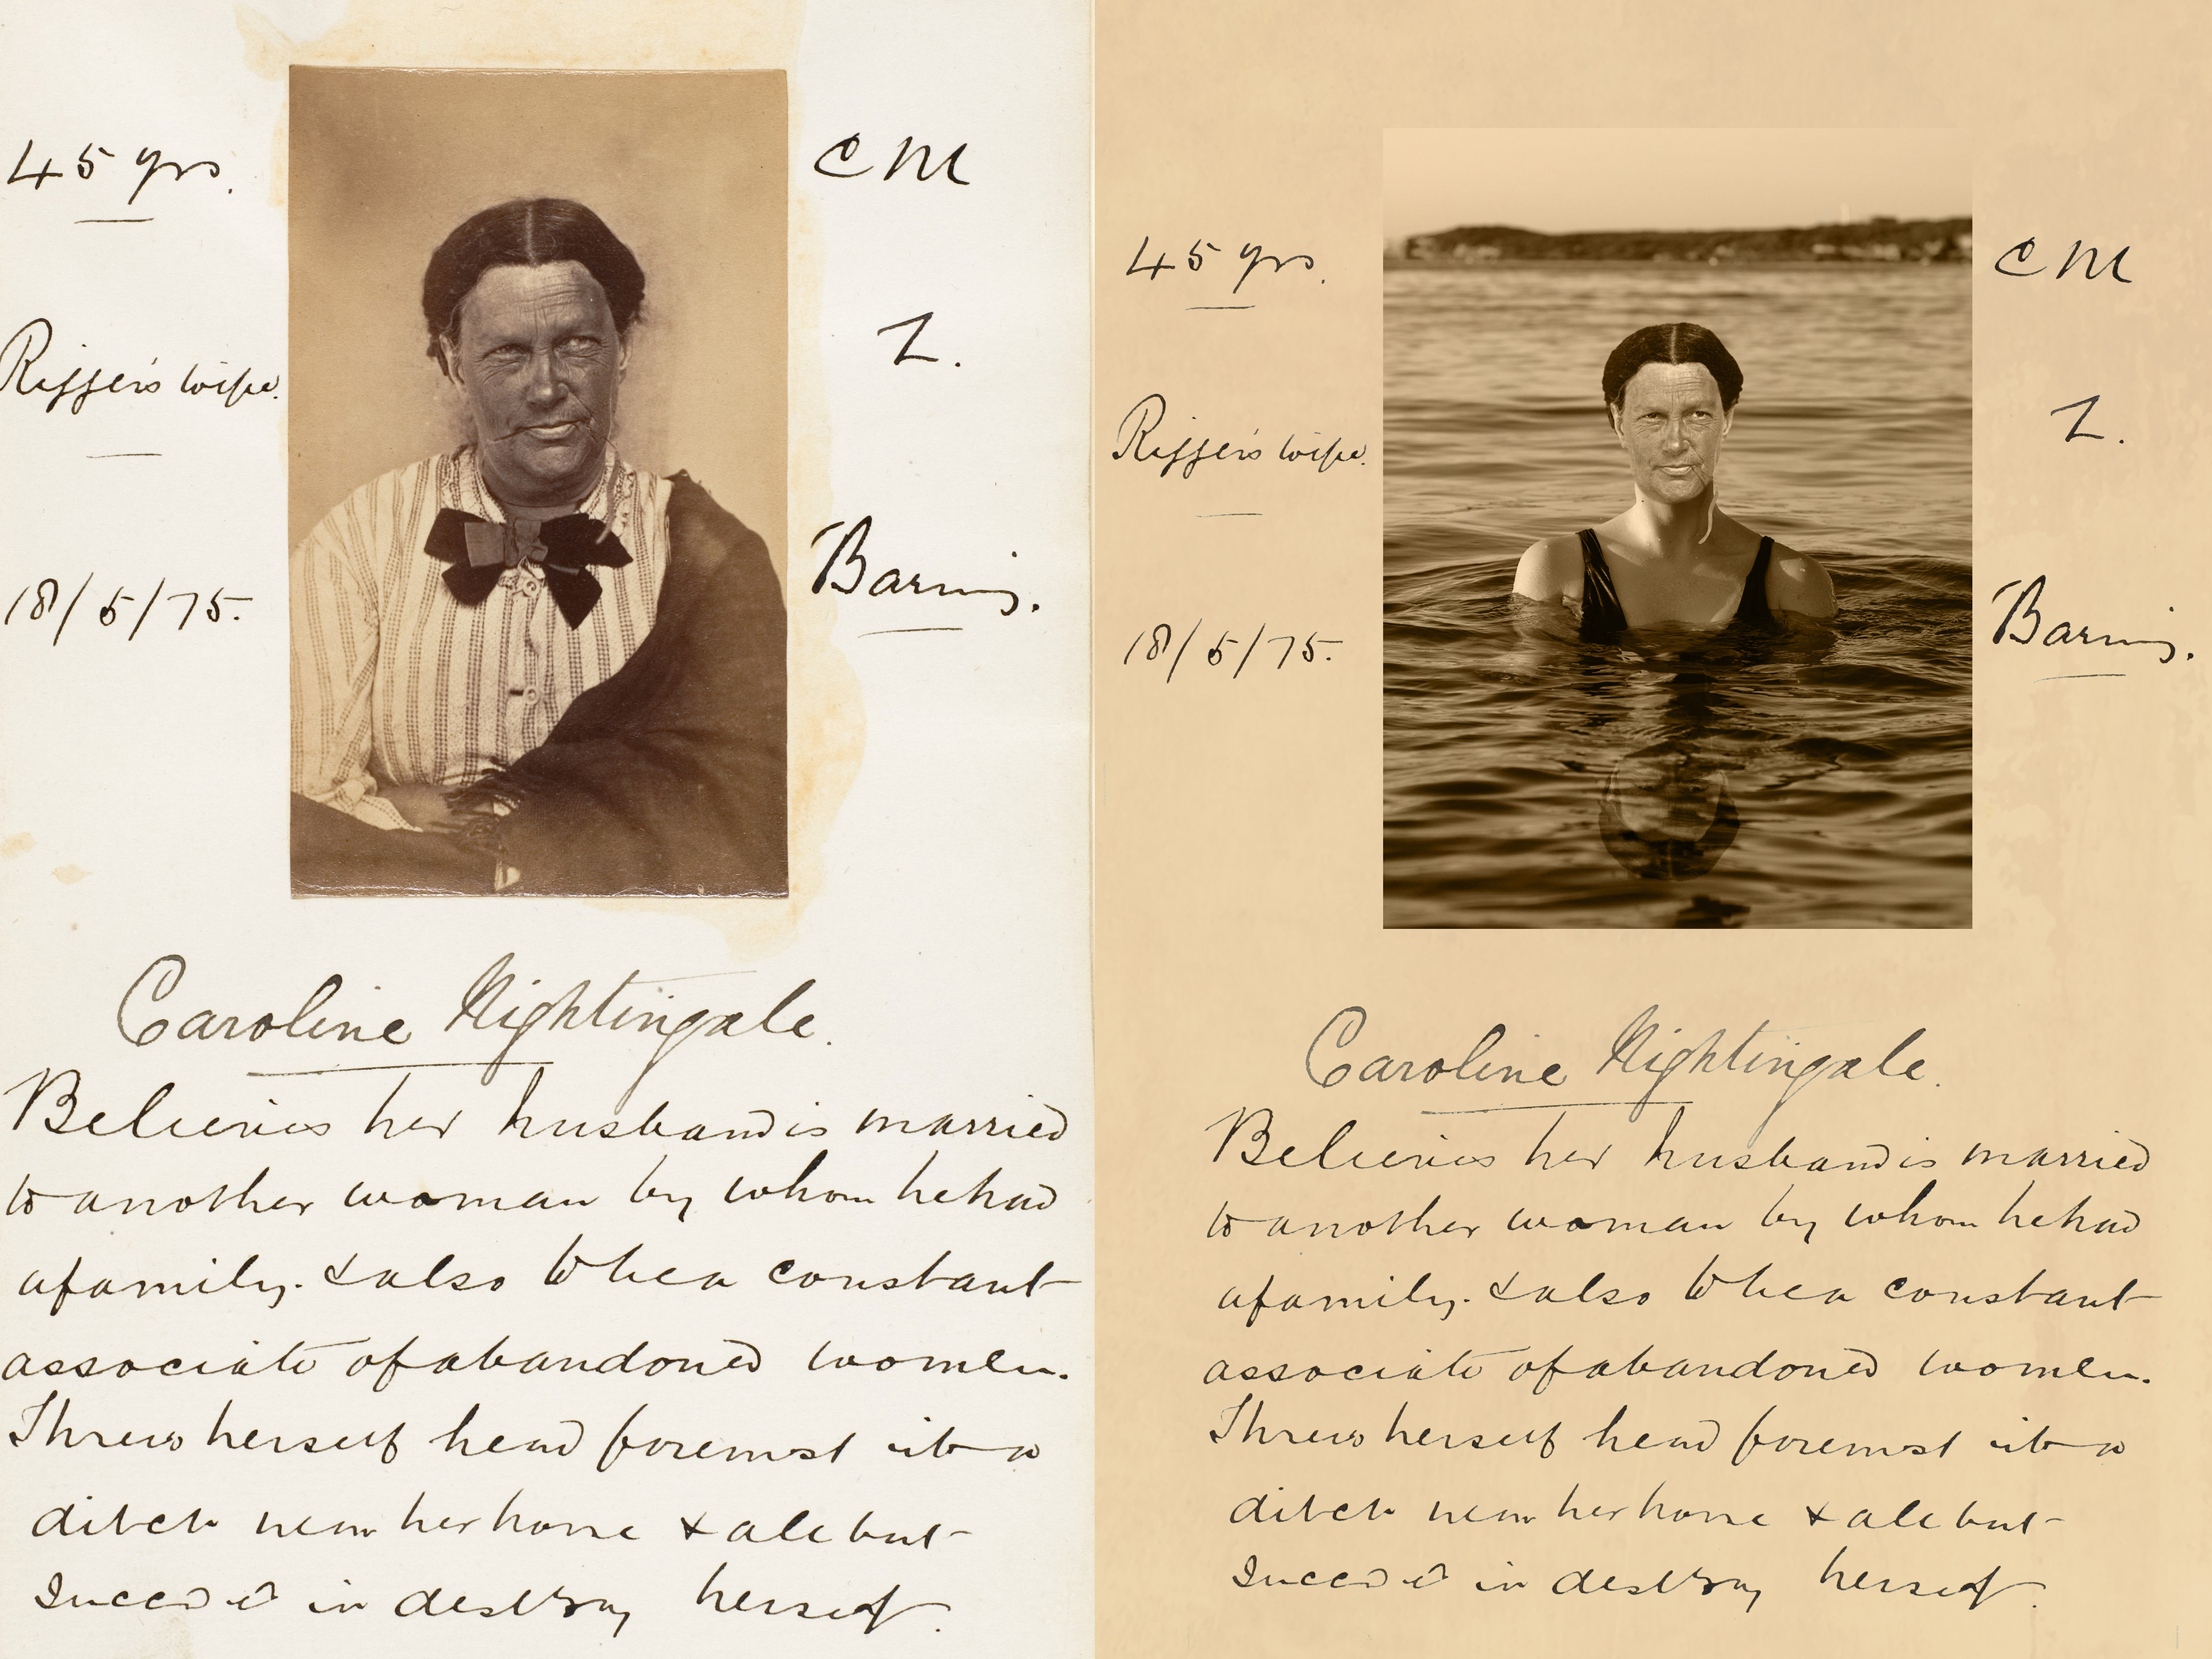 45 yrs.
Rigger's wife.
18/5/75.
C M
Z.
Barnes.
Caroline Nightingale.
Believes her husband is married
to another woman by whom he had
a family. & also to be a constant
associate of abandoned women.
Threw herself head foremost into a
ditch near her home & all but
succeeded in destroy herself.
45 yrs.
Rigger's wife.
18/5/75.
C M
Z.
Caroline Nightingale.
Believes her husband is married
to another woman by whom he had
a family. & also to be a constant
associate of abandoned women.
Threw herself head foremost into a
ditch near her home & all but
succeeded in destroy herself.